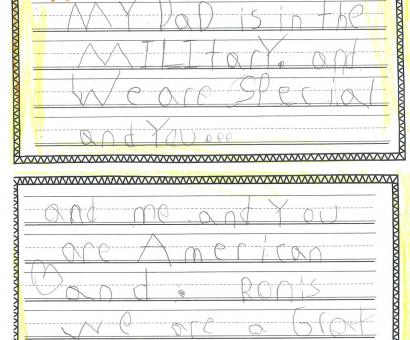 MY DaD is in the
MILItarY. and
We are SPecial
and YoU are
and me and You
are American
and. Ronis
We are a Great